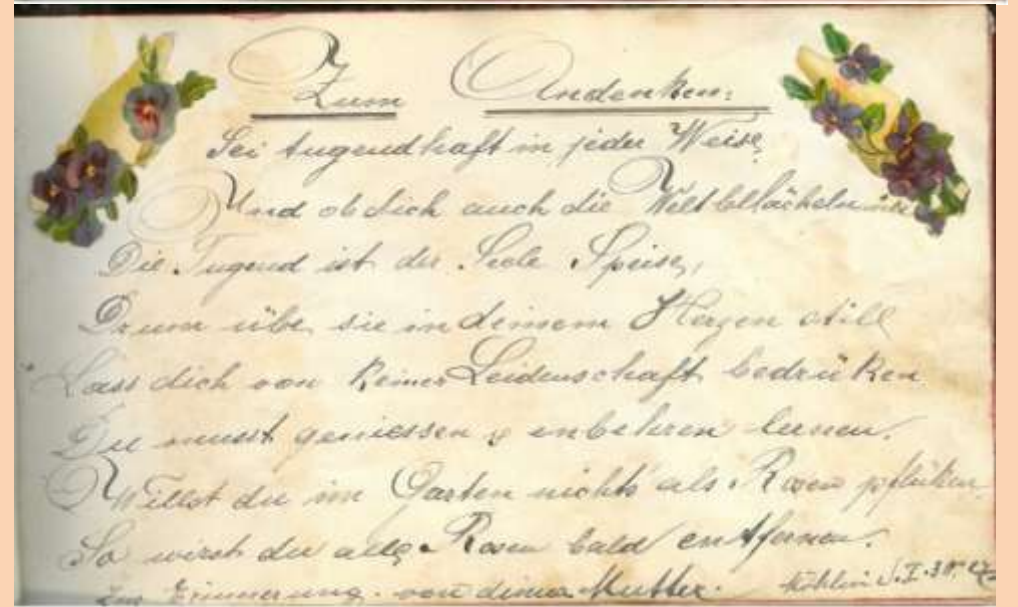 Zum Andenken:
Sei tugendhaft in jeder Weise,
Und ob dich auch die Welt bellächeln
Die Tugend ist der Seele Speise,
Drum übe sie in deinem Herzen still
Lass dich von keiner Leidenschaft bedrüken
Du musst geniessen & enbehren lernen.
Willst du im Garten nichts als Rosen pflüken
So wirst du alle Rosen bald entfernen.
Zur Erinnerung von deiner Mutter.